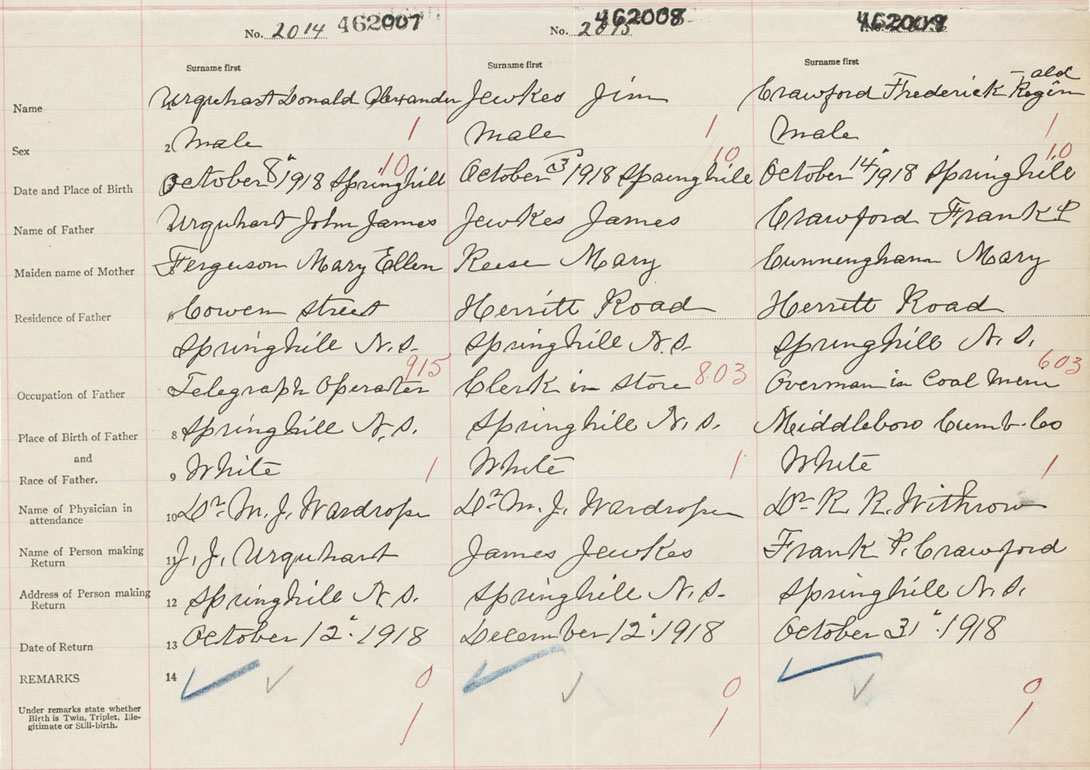 No. 2014 462007 No. 2015 462008 No. 462009
Surname first Surname first Surname first
Name Urquhart Donald Alexander Jewkes Jim Crawford Frederick Regin-ald
Sex 2 Male 1 Male 1 Male 1
Date and Place of Birth October 8" 1918 Springhill 10 October 3" 1918 Springhill 10 October 14" 1918 Springhill 10
Name of Father Urquhart John James Jewkes James Crawford Frank P
Maiden name of Mother Ferguson Mary Ellen Reese Mary Cunningham Mary
Residence of Father Cowen Street Herritt Road Herritt Road
Springhill N.S. Springhill N.S. Springhill N.S.
Occupation of Father Telegraph Operater 915 Clerk in Store 803 Overman in Coal Mine 603
Place of Birth of Father 8 Springhill N.S. Springhill N.S. Middleboro Cumb. Co
and
Race of Father. 9 White 1 White 1 White 1
Name of Physician in attendance 10 Dr. M. J. Wardrope Dr. M. J. Wardrope Dr R. R. Withrow
Name of Person making Return 11 J. J. Urquhart James Jewkes Frank P. Crawford
Address of Person making Return 12 Springhill N.S. Springhill N.S. Springhill N.S.
Date of Return 13 October 12". 1918 December 12". 1918 October 31". 1918
REMARKS 14 0 0 0
Under remarks state whether Birth is Twin, Triplet, Ille-gitimate or Still-birth. 1 1 1